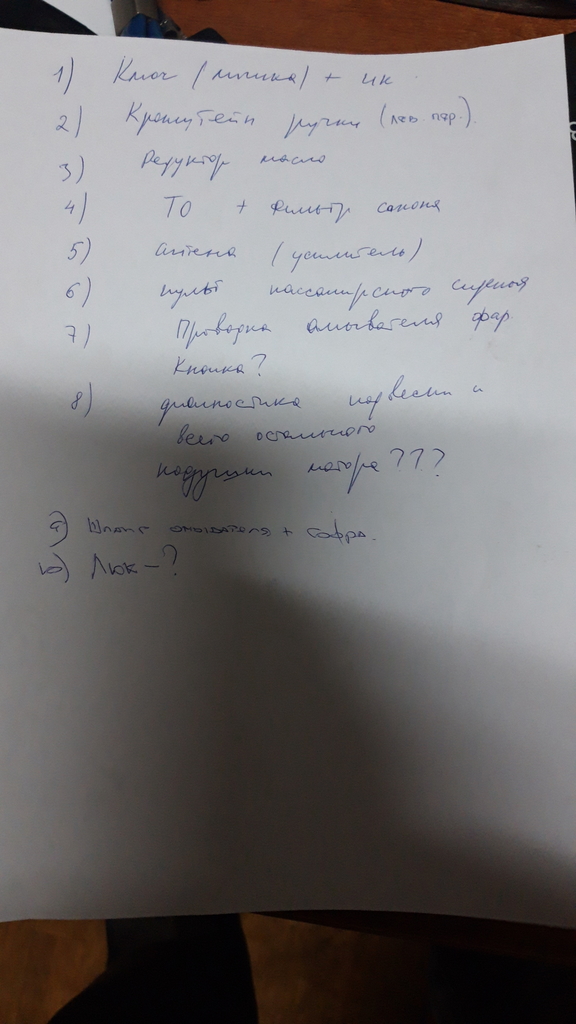 1) Ключ (личинка) + ИК
2) Кронштейн ручки (лев пер.).
3) Редуктор масло
4) ТО + фильтр салона
5) антена (усилитель)
6) пульт пассажирского сиденья
7) Проводка омывателя фар.
Кнопка?
8) диагностика подвески и
всего остального
подушки мотора???
9) Шланг омывателя + гофра.
10) Люк-?